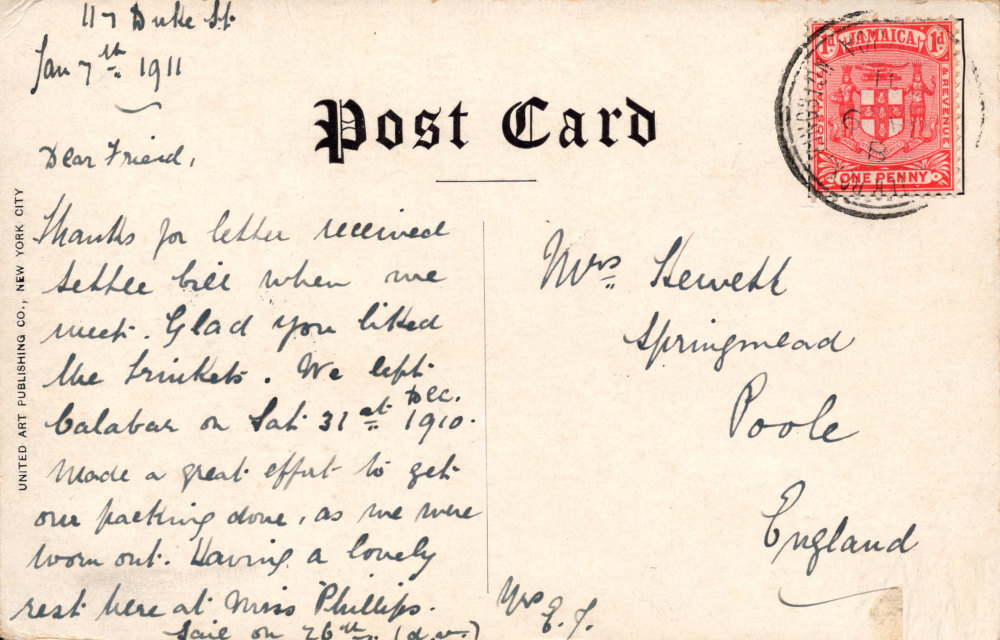 117 Duke St.
Jan 7th. 1911
Post Card
Dear Friend,
Thanks for letter received
settle bill when we
meet. Glad you liked
the trinkets. We left
Calabar on Sat 31st Dec. 1910.
Made a great effort to get
our packing done, as we were
worn out. Having a lovely
rest here at Miss Phillips.
Sail on 26th (d.v.)
Yrs
E. J.
Mrs Hewett
Springmead
Poole
England
JAMAICA
1d
1d
POSTAGE
& REVENUE
ONE PENNY
KINGSTON
UNITED ART PUBLISHING CO., NEW YORK CITY